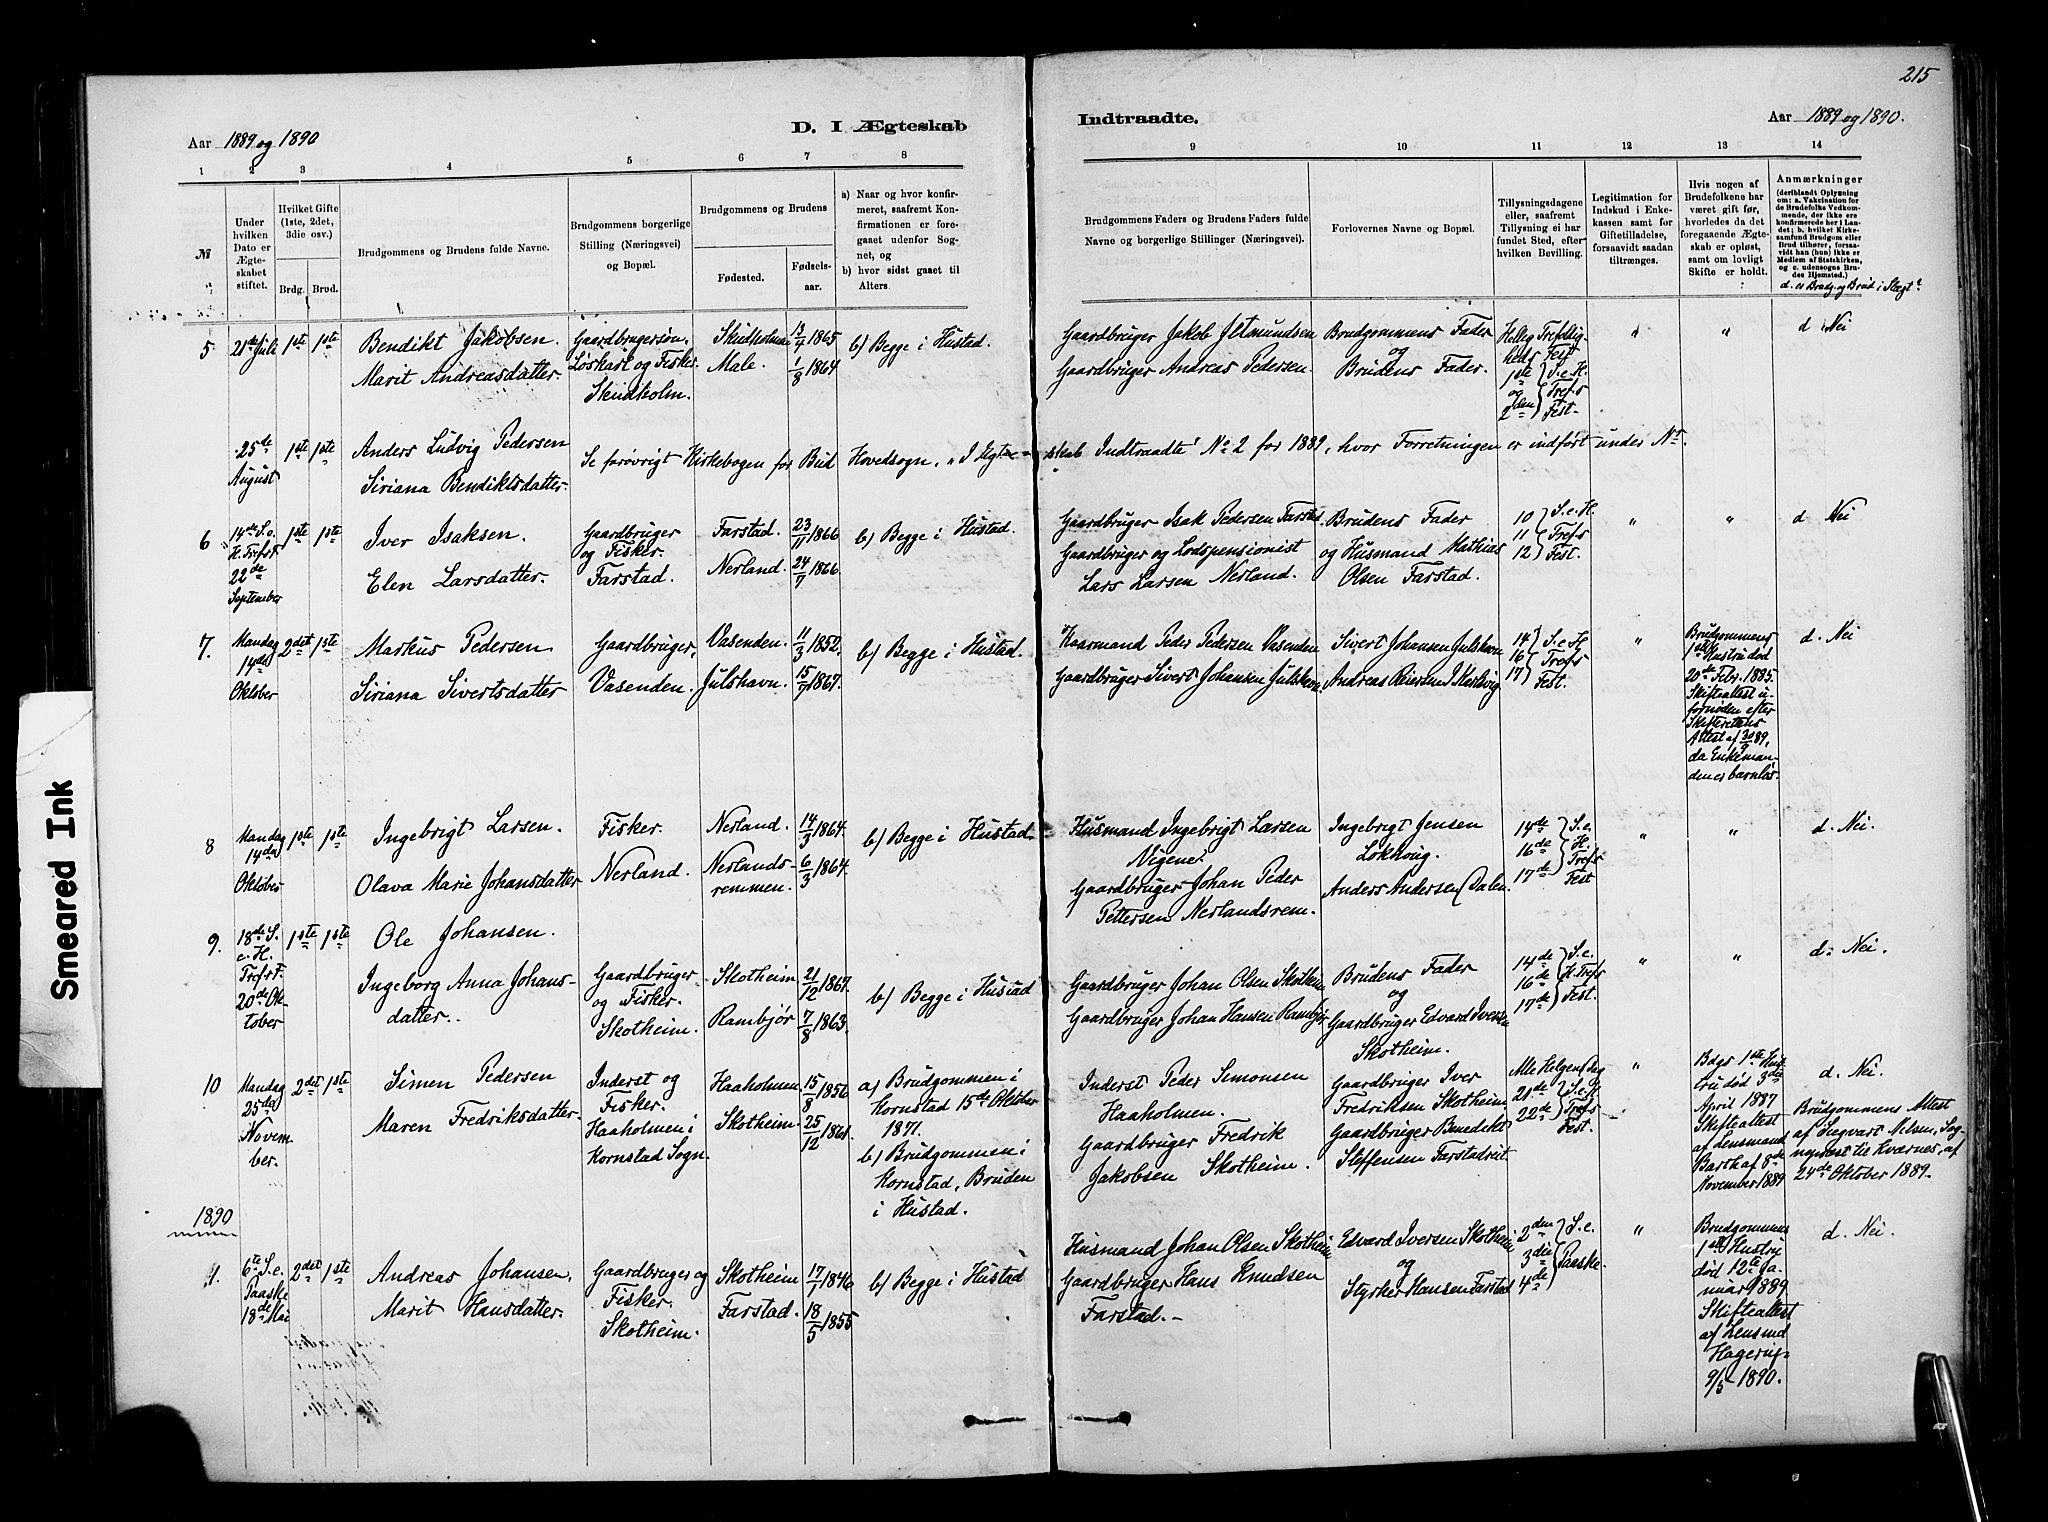 215
Aar 1889 og 1890
D. I Ægteskab
Indtraadte.
Aar 1889 og 1890.
1 2 3 4 5 6 7 8 9 10 11 12 13 14
№
Under hvilken Dato er Ægteskabet stiftet.
Hvilket Gifte (1ste, 2det, 3die osv.)
Brdg. Brud.
Brudgommens og Brudens fulde Navne.
Brudgommens borgerlige Stilling (Næringsvei) og Bopæl.
Brudgommens og Brudens
Fødested.
Fødselsaar.
a) Naar og hvor konfirmeret, saafremt Konfirmationen er foregaaet udenfor Sognet, og
b) hvor sidst gaaet til Alters.
Brudgommens Faders og Brudens Faders fulde Navne og borgerlige Stillinger (Næringsvei).
Forlovernes Navne og Bopæl.
Tillysningsdagene eller, saafremt Tillysning ei har fundet Sted, efter hvilken Bevilling.
Legitimation for Indskud i Enkekassen samt for Giftetilladelse, forsaavidt saadan tiltrænges.
Hvis nogen af Brudefolkene har været gift før, hvorledes da det foregaaende Ægteskab er opløst, samt om lovligt Skifte er holdt.
Anmærkninger
(deriblandt Oplysning om: a. Vakcination for de Brudefolks Vedkommende, der ikke ere konfirmerede her i Landet; b. hvilket Kirkesamfund Brudgom eller Brud tilhører, forsaavidt han (hun) ikke er Medlem af Statskirken, og c. udensogns Brudes Hjemsted.)
d. er Brudg. og Brud i Slægt?
5 21de Juli 1ste 1ste
Bendikt Jakobsen.
Marit Andreasdatter.
Gaardbrugersøn. Løskarl og Fisker.
Male.
13/4 1865
1/8 1864
b) Begge i Hustad.
Gaardbruger Jakob Jetmundsen
Gaardbruger Andreas Pedersen.
Brudgommens Fader
og
Brudens Fader.
Hellig Trefoldigheds Fest
1ste og 2den S. e. H. Tref's Fest.
" "
d Nei
25de August 1ste 1ste
Anders Ludvig Pedersen
Siriana Bendiktsdatter.
Se forøvrigt Kirkebogen for Bud Hovedsogn, "I Ægteskab Indtraadte" No 2 for 1889, hvor Forretningen er indført under Nr.
6 14de S. e. H. Tref's F. 22de September 1ste 1ste
Iver Isaksen.
Elen Larsdatter.
Gaardbruger
og Fisker.
Farstad.
Farstad. 23/11 1866
Nerland. 24/7 1866
b) Begge i Hustad.
Gaardbruger Isak Pedersen Farstad
Gaardbruger og Lodspensionist
Lars Larsen Nerland.
Brudens Fader
og Husmand Mathias
Olsen Farstad.
10 11 12 S. e. H. Tref's Fest.
" "
d Nei
7. Mandag 14de Oktober 2det 1ste
Markus Pedersen
Siriana Sivertsdatter
Gaardbruger,
Vasenden.
Vasenden. 11/3 1852.
Julshavn. 15/7 1867.
b) Begge i Hustad.
Kaarmand Peder Pedersen Vasenden
Gaardbruger Sivert Johansen Julshavn
Sivert Johansen Julshavn
Andreas
14 16 17 S. e. H. Tref's Fest.
"
Brudgommens
1ste Hustru død
20de Febr. 1885.
Skifteattest ufornøden efter
Skifterettens
Attest af 30/9 89,
da Enkemanden er barnløs.
d. Nei
8 Mandag 14de Oktober 1ste 1ste
Ingebrigt Larsen.
Olava Marie Johansdatter
Fisker.
Nerland.
Nerland. 14/3 1864.
Nerlandsremmen. 6/3 1864.
b) Begge i Hustad.
Husmand Ingebrigt Larsen
Gaardbruger Johan Peder
Pettersen Nerlandsrem.
Ingebrigt Jensen
Anders Andersen Dalen.
14de 16de 17de S. e. H. Tref's Fest
" "
d. Nei.
9. 18de S. e. H. Tref's F. 20de Oktober 1ste 1ste
Ole Johansen.
Ingeborg Anna Johansdatter.
Gaardbruger
og Fisker.
Skotheim.
Skotheim 21/12 1867.
Rambjør 7/8 1863.
b) Begge i Hustad
Gaardbruger Johan Olsen Skotheim
Gaardbruger Johan Hansen Rambjør
Brudens Fader
og
Gaardbruger Edvard Iversen
Skotheim.
14de 16de 17de S. e. H. Tref's Fest.
" "
d. Nei.
10 Mandag 25de November. 2det 1ste
Simen Pedersen
Maren Fredriksdatter.
Inderst og
Fisker.
Haaholmen i
Kornstad Sogn.
Haaholmen 15/8 1856
Skotheim 25/12 1861.
a) Brudgommen i
Kornstad 15de Oktober
1871.
b) Brudgommen i
Kornstad, Bruden
i Hustad.
Inderst Peder Simonsen
Haaholmen.
Gaardbruger Fredrik
Jakobsen Skotheim.
Gaardbruger Iver
Fredriksen Skotheim
Gaardbruger Benedikt
Steffensen Farstadreit
Alle Helgens Dag
21de 22de S. e. H. Tref's Fest.
"
Bdgs 1ste Hustru død 3die
April 1887
Skifteattest
af Lensmand
Barth af 8de
November 1889
d. Nei.
Brudgommens Attest
af Segvart Nilsen, Sogneprest til Kværnes, af
24de Oktober 1889.
1890
1. 6te S. e. Paaske 18de Mai 2det 1ste
Andreas Johansen.
Marit Hansdatter.
Gaardbruger og
Fisker.
Skotheim.
Skotheim 17/7 1846
Farstad. 18/5 1855
b) Begge i Hustad
Husmand Johan Olsen Skotheim
Gaardbruger Hans Knudsen
Farstad.
Edvard Iversen Skotheim
og
Styrker Hansen Farstad
2den 3die 4de S. e. Paaske.
"
Brudgommens
1ste Hustru
død 12te Januar 1889
Skifteattest
af Lensmd
Hagerup
9/5 1890.
d. Nei.
Smeared Ink